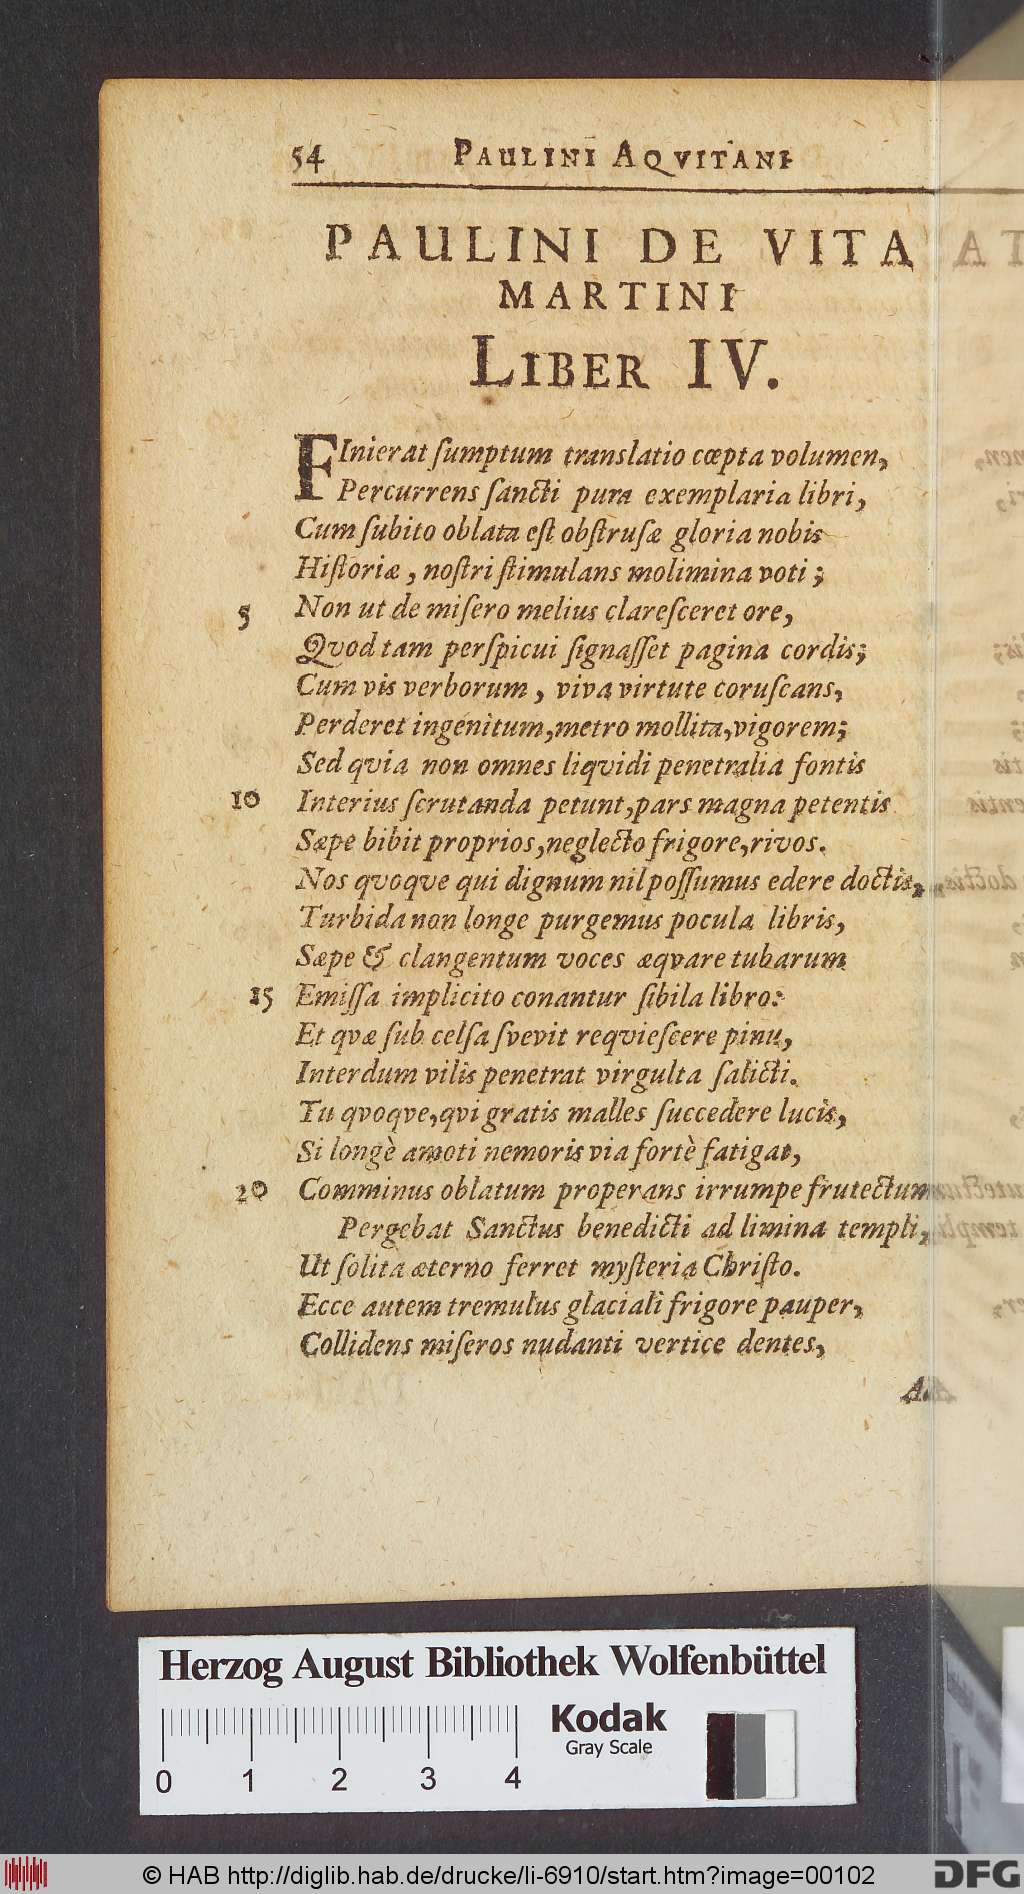 54 PAULINI AQVITANI
PAULINI DE VITA
MARTINI
LIBER IV.
FInierat ſumptum translatio cœpta volumen,
Percurrens ſancti pura exemplaria libri,
Cum ſubito oblata eſt obſtruſæ gloria nobis
Hiſtoriæ, noſtri ſtimulans molimina voti;
5 Non ut de miſero melius clareſceret ore,
Qvod tam perſpicui ſignaſſet pagina cordis;
Cum vis verborum, viva virtute coruſcans,
Perderet ingenitum, metro mollita, vigorem;
Sed qvia non omnes liqvidi penetralia fontis
10 Interius ſcrutanda petunt, pars magna petentis
Sæpe bibit proprios, neglecto frigore, rivos.
Nos qvoqve qui dignum nil poſſumus edere doctis,
Turbida non longe purgemus pocula libris,
Sæpe & clangentum voces æqvare tubarum
15 Emiſſa implicito conantur ſibila libro:
Et qvæ ſub celſa ſvevit reqvieſcere pinu,
Interdum vilis penetrat virgulta ſalicti.
Tu qvoqve, qvi gratis malles ſuccedere lucis,
Si longè amoti nemoris via fortè fatigat,
20 Comminus oblatum properans irrumpe frutectum
Pergebat Sanctus benedicti ad limina templi,
Ut ſolita æterno ferret myſteria Chriſto.
Ecce autem tremulus glaciali frigore pauper,
Collidens miſeros nudanti vertice dentes,
Herzog August Bibliothek Wolfenbüttel
Kodak
Gray Scale
0 1 2 3 4
© HAB http://diglib.hab.de/drucke/li-6910/start.htm?image=00102
DFG